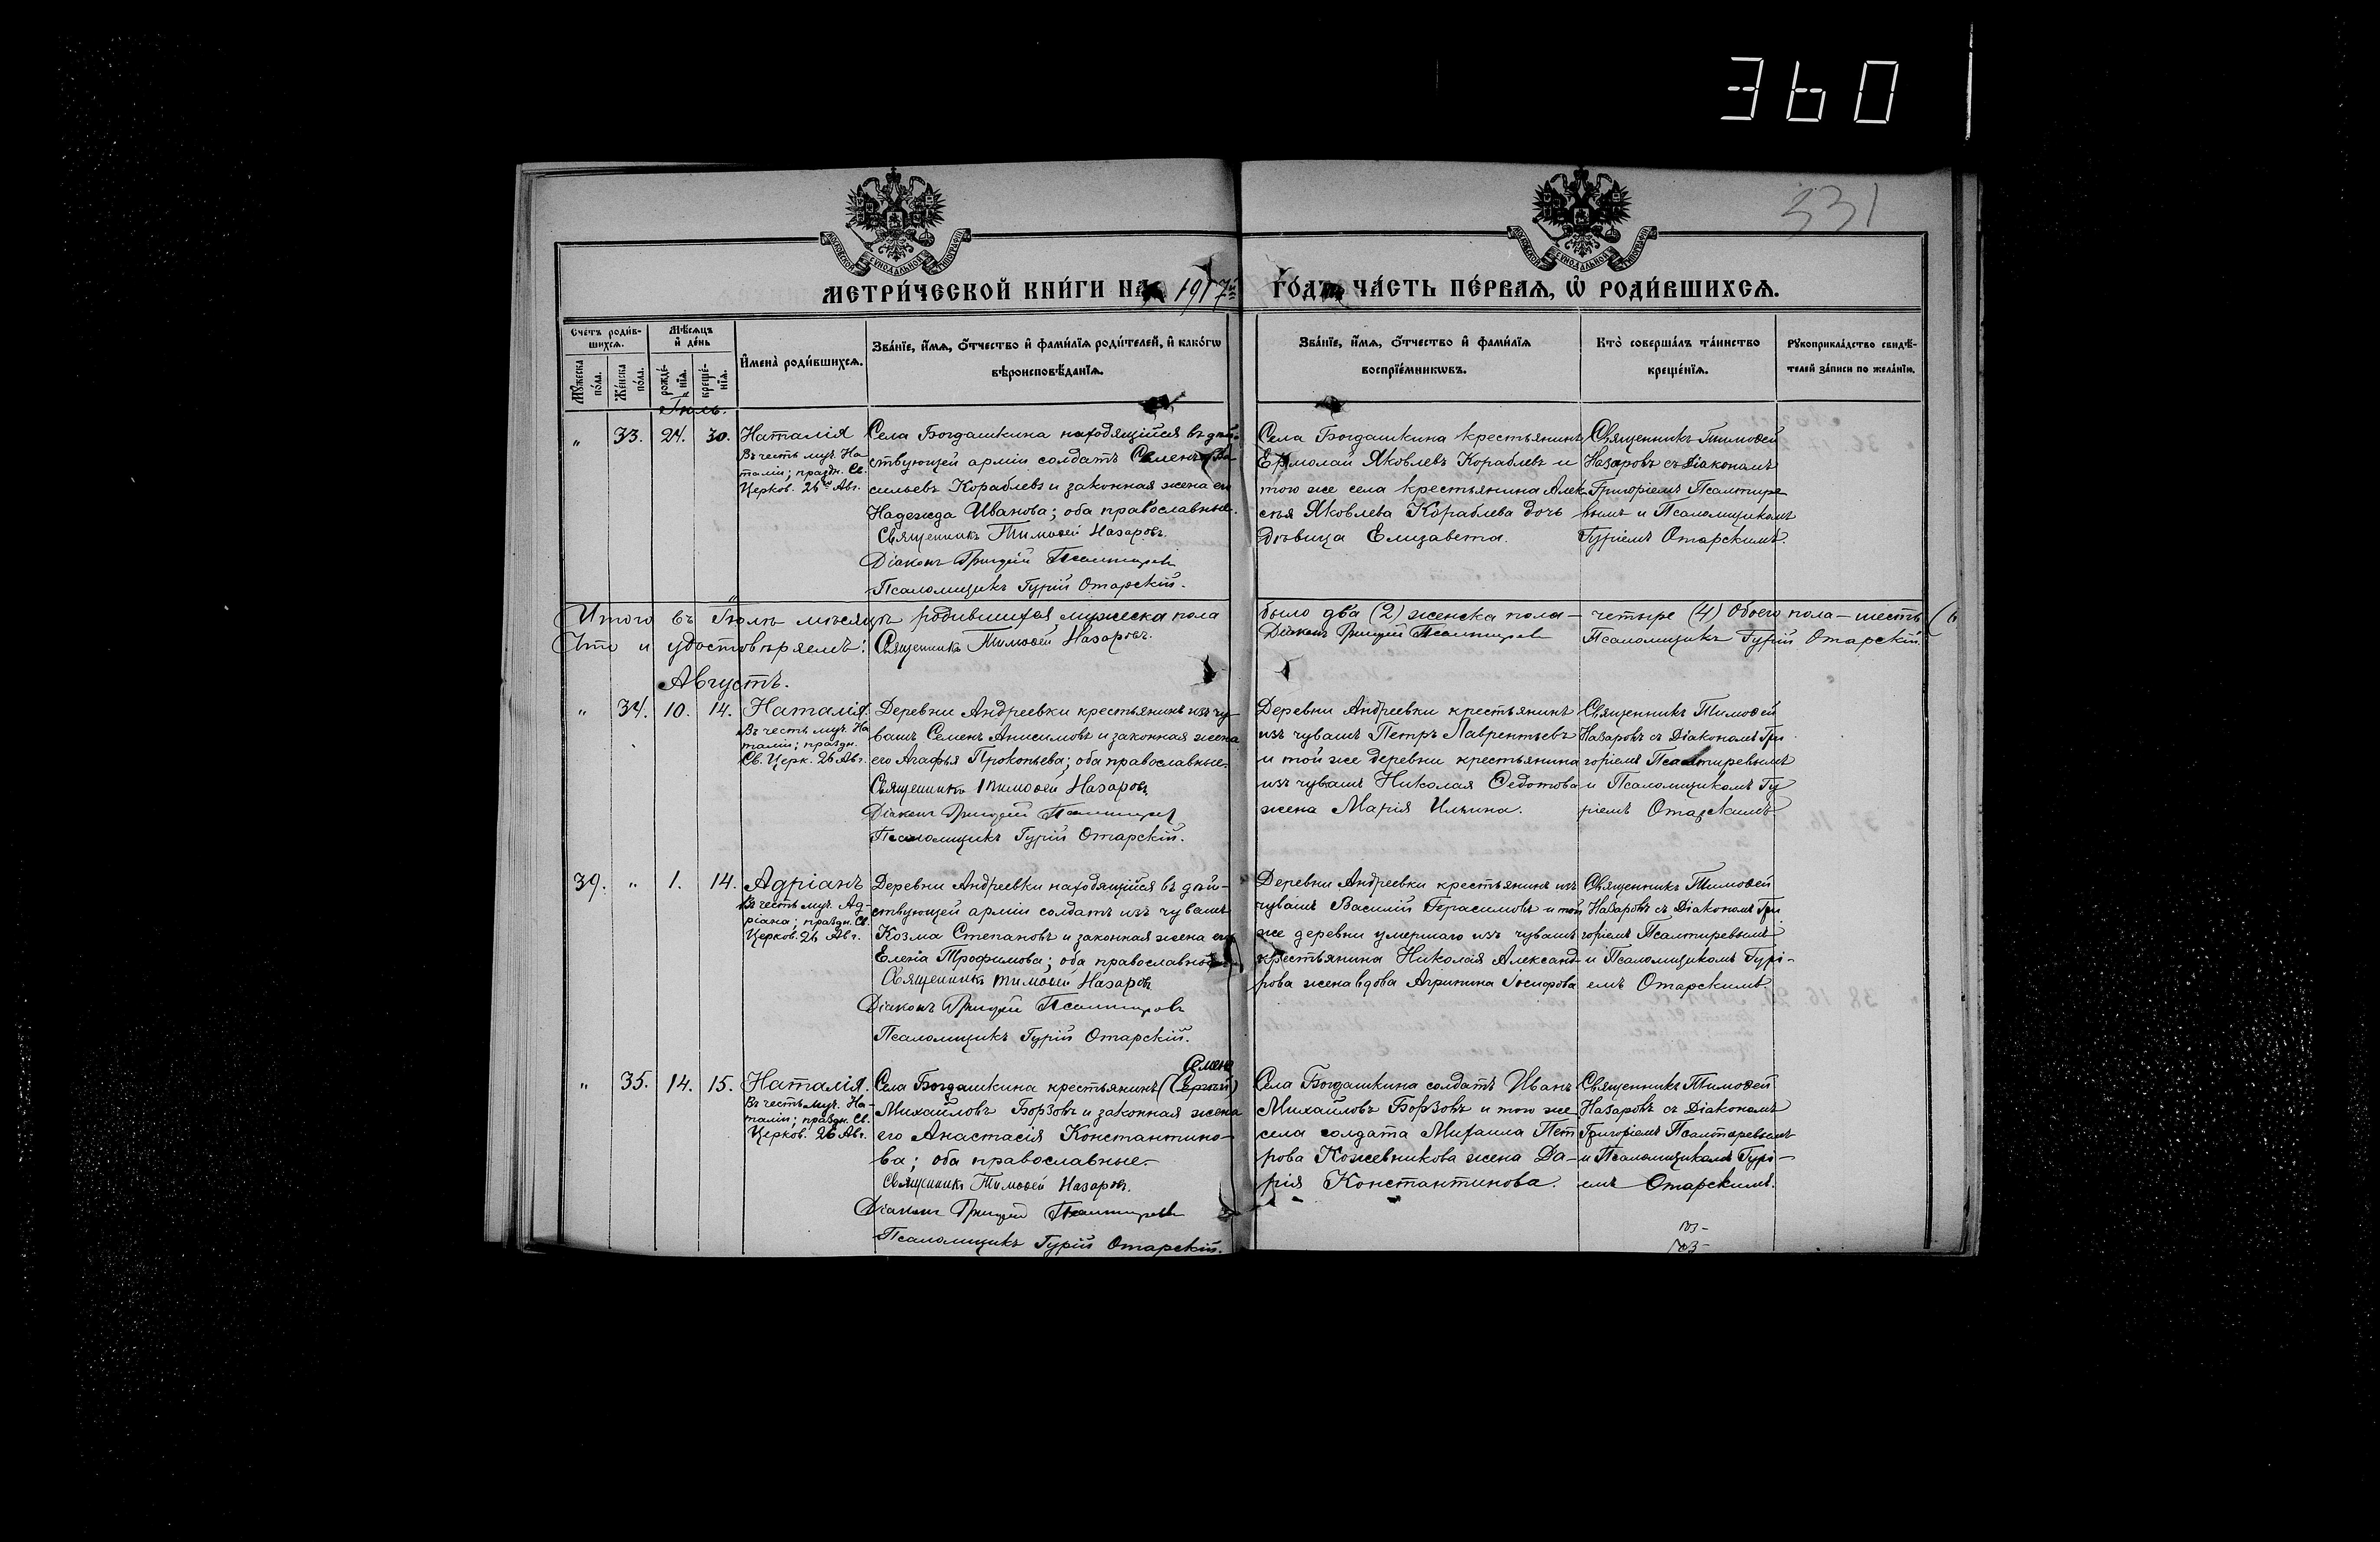 360
331
МОСКОВСКОЙ СУНОДАЛЬНОЙ ТИПОГРАФІИ
МОСКОВСКОЙ СУНОДАЛЬНОЙ ТИПОГРАФІИ
МЕТРИ́ЧЕСКОЙ КНИ́ГИ НА 1917й ГО́ДЪ ЧА́СТЬ ПЕ́РВАѦ, Ѡ҆ РОДИ́ВШИХСѦ.
Сче́тъ роди́в-
шихсѧ.
Мꙋ́жеска по́ла.
Же́нска по́ла.
Мѣ́сѧцъ
и҆ де́нь
рожде́-
нїѧ.
креще́-
нїѧ.
И҆мена̀ роди́вшихсѧ.
Зва́нїе, и҆́мѧ, ѻ҆́тчество и҆ фами́лїѧ роди́телей, и҆ како́гѡ
вѣроисповѣ́данїѧ.
Зва́нїе, и҆́мѧ, ѻ҆́тчество и҆ фами́лїѧ
воспрїе́мникѡвъ.
Кто̀ соверша́лъ та́инство
креще́нїѧ.
Рꙋкоприкла́дство свидѣ́-
телей за́писи по жела́нїю.
Іюль.
" 33. 24. 30. Наталія
Въ честь муч. На-
таліи; праздн. Св.
Церков. 26го Авг.
Села Богдашкина находящійся въ дѣй-
ствующей арміи солдатъ Семенъ Ва
сильевъ Кораблевъ и законная жена его
Надежда Иванова; оба православные.
Священникъ Тимоѳей Назаровъ.
Діаконъ Григорій Псалтыревъ
Псаломщикъ Гурій Отарскій.
Села Богдашкина крестьянинъ
Ермолай Яковлевъ Кораблевъ и
того же села крестьянина Алек
сѣя Яковлева Кораблева дочь
дѣвица Елизавета.
Священникъ Тимоѳей
Назаровъ съ Діакономъ
Григоріемъ Псалтыре
вымъ и Псаломщикомъ
Гуріемъ Отарскимъ.
Итого въ Іюлѣ мѣсяцѣ родившихся мужеска пола было два (2) женска пола – четыре (4) Обоего пола – шесть (6
Что и удостовѣряемъ: Священникъ Тимоѳей Назаровъ. Діаконъ Григорій Псалтыревъ Псаломщикъ Гурій Отарскій.
Августъ.
" 34. 10. 14. Наталія.
Въ честь муч. На
таліи; праздн.
Св. Церк. 26 Авг.
Деревни Андреевки крестьянинъ изъ чу-
вашъ Семенъ Анисимовъ и законная жена
его Агафья Прокопьева; оба православные.
Священникъ Тимоѳей Назаровъ.
Діаконъ Григорій Псалтыревъ
Псаломщикъ Гурій Отарскій.
Деревни Андреевки крестьянинъ
изъ чувашъ Петръ Лаврентьевъ
и той же деревни крестьянина
изъ чувашъ Николая Ѳедотова
жена Марія Ильина.
Священникъ Тимоѳей
Назаровъ съ Діакономъ Гри
горіемъ Псалтыревымъ
и Псаломщикомъ Гу
ріемъ Отарскимъ
39. " 1. 14. Адріанъ
Въ честь муч. Ад-
ріана; праздн. Св.
Церков. 26 Авг.
Деревни Андреевки находящійся въ дѣй-
ствующей арміи солдатъ изъ чувашъ
Козма Степановъ и законная жена его
Еленіа Трофимова; оба православные
Священникъ Тимоѳей Назаровъ
Діаконъ Григорій Псалтыревъ
Псаломщикъ Гурій Отарскій.
Деревни Андреевки крестьянинъ изъ
чувашъ Василій Герасимовъ и той
же деревни умершаго изъ чувашъ
крестьянина Николая Александ-
рова жена вдова Агрипина Іосифова
Священникъ Тимоѳей
Назаровъ съ Діакономъ Гри
горіемъ Псалтыревымъ
и Псаломщикомъ Гурі-
емъ Отарскимъ
" 35. 14. 15. Наталія.
Въ честь муч. На-
таліи; праздн. Св.
Церков. 26 Авг.
Семенъ
Села Богдашкина крестьянинъ (Сергѣй)
Михайловъ Борзовъ и законная жена
его Анастасія Константино-
ва; оба православные.
Священникъ Тимоѳей Назаровъ.
Діаконъ Григорій Псалтыревъ
Псаломщикъ Гурій Отарскій.
Села Богдашкина солдатъ Иванъ
Михайловъ Борзовъ и того же
села солдата Михаила Пет
рова Кожевникова жена Да-
рія Константинова.
Священникъ Тимоѳей
Назаровъ съ Діакономъ
Григоріемъ Псалтыревымъ
и Псаломщикомъ Гурі-
емъ Отарскимъ.